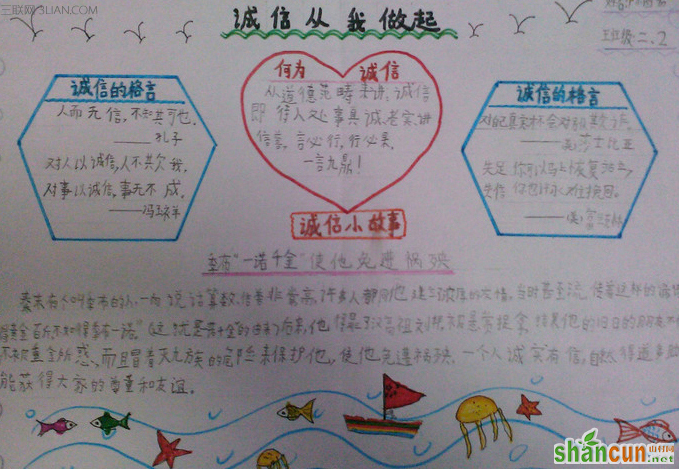 三联网 3LIAN.COM
诚信从我做起
班级:二、2
诚信的格言
人而无信,不知其可也。
——孔子
对人以诚信,人不欺我,
对事以诚信,事无不成。
——冯玉祥
何为 诚信
从道德范畴来讲,诚信
即待人处事真诚、老实、讲
信誉,言必行,行必果,
一言九鼎!
诚信的格言
对自己真实,才不会对别人欺诈。
——莎士比亚
失足,你可以马上恢复站立,
失信,你也许永难挽回。
——美:富兰克林
诚信小故事
季布“一诺千金”使他免遭祸殃
秦末有个叫季布的人,一向说话算数,信誉非常高,许多人都同他建立起了浓厚的友情。当时甚至流传着这样的谚语
得黄金百斤,不如得季布一诺。”(这就是一诺千金的由来)后来,他得罪了汉高祖刘邦,被悬赏捉拿。结果他的旧日的朋友不
不被重金所惑,而且冒着灭九族的危险来保护他,使他免遭祸殃。一个人诚实有信,自然得道多助
能获得大家的尊重和友谊。
shancun
山村网
.net